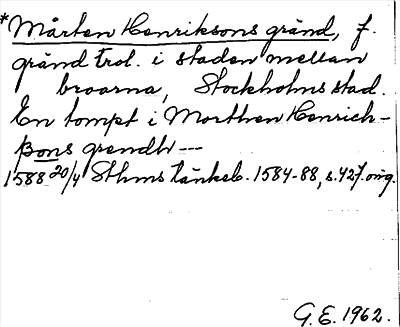 *Mårten Henriksons gränd, f.
gränd trol. i staden mellan
broarna, Stockholms stad.
En tompt i Morthen Henrich-
ßons grendh ---
1588 20/4 Sthms tänkeb. 1584-88, s. 427. orig.
G.E. 1962.